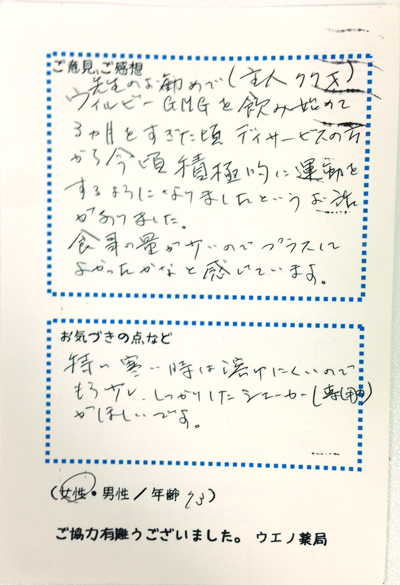 ご意見、ご感想
先生のお勧めで(主人 77才)
ウィルビーGMGを飲み始めて
3ヵ月をすぎた頃デイサービスの方
から今頃積極的に運動を
するようになりましたというお話
がありました。
食事の量が少いのでプラスして
よかったかなと感じています。
お気づきの点など
特に寒い時は溶けにくいので
もう少ししっかりしたシェーカー(専用)
がほしいです。
(女性・男性/年齢 73)
ご協力有難うございました。 ウエノ薬局